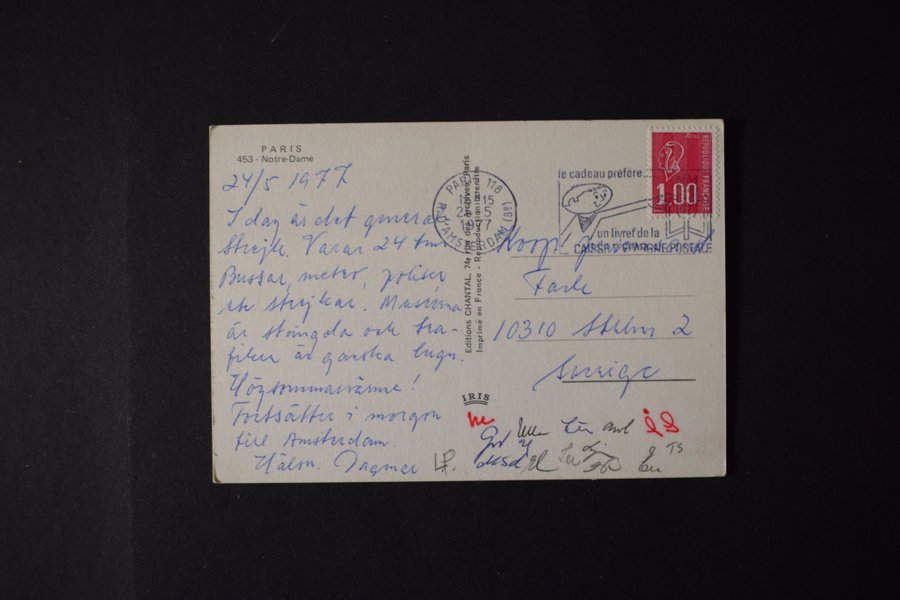 PARIS
453 - Notre-Dame
24/5 1977
I dag är det general
strejk. Varar 24 tim
Bussar, metro, poliser
etc strejkar. Museerna
är stängda och tra-
fiken är ganska lugn.
Högsommarvärme!
Fortsätter i morgon
till Amsterdam.
Hälsn. Dagmar
Editions CHANTAL, 74, rue des Archives, Paris
Imprimé en France - Reproduction interdite
IRIS
PARIS 118
15
5
1977
R. D'AMSTERDAM (8e)
le cadeau préféré...
un livret de la
CAISSE D'EPARGNE POSTALE
REPUBLIQUE FRANÇAISE
1,00
Koop.
Fack
10310 Sthlm 2
Sverige
TS